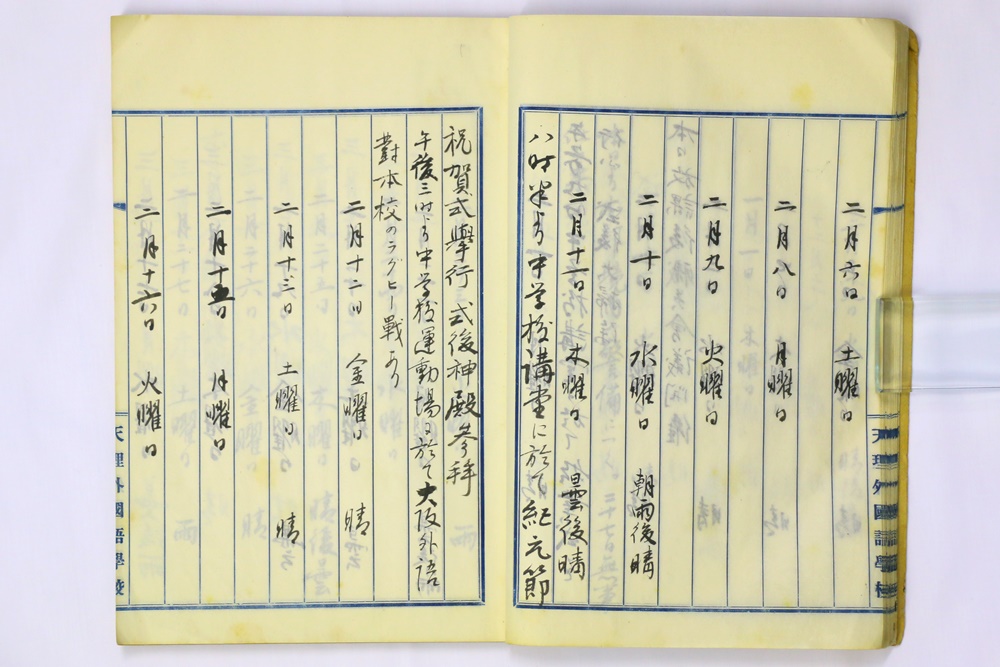 二月六日　土曜日
二月八日　月曜日
二月九日　火曜日
二月十日　水曜日　朝雨後晴
二月十一日　木曜日　曇後晴
八時半より中学校講堂に於て紀元節
天理外國語學校
祝賀式擧行式後神殿參拜
午後三時より中学校運動場に於て大阪外語
對本校のラグビー戰あり
二月十二日　金曜日　晴
二月十三日　土曜日　晴
二月十五日　月曜日
二月十六日　火曜日
天理外國語學校